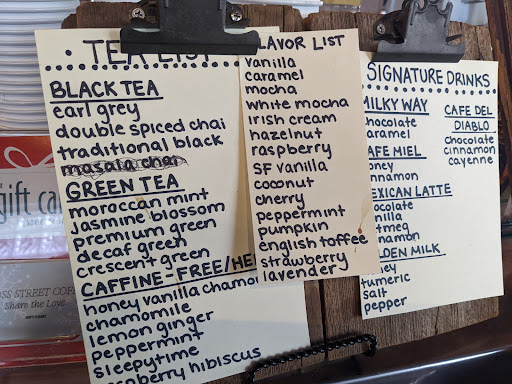 TEA LIST
BLACK TEA
earl grey
double spiced chai
traditional black
masala chai
GREEN TEA
moroccan mint
jasmine blossom
premium green
decaf green
crescent green
CAFFINE-FREE/HE
honey vanilla chamom
chamomile
lemon ginger
peppermint
sleepytime
spberry hibiscus
LAVOR LIST
vanilla
caramel
mocha
white mocha
irish cream
hazelnut
raspberry
SF vanilla
coconut
cherry
peppermint
pumpkin
english toffee
strawberry
lavender
SIGNATURE DRINKS
MILKY WAY
chocolate
caramel
AFE MIEL
honey
nnamon
MEXICAN LATTE
ocolate
nilla
tmeg
namon
LDEN MILK
ney
tumeric
salt
pepper
CAFE DEL
DIABLO
chocolate
cinnamon
cayenne
gift ca
SS STREET COF
Share the Love